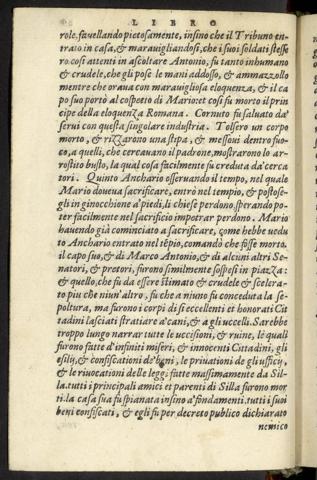 LIBRO
role, favellando pietosamente, insino che il Tribuno en-
trato in casa, & maravigliandosi, che i suoi soldati stesse
ro cosi attenti in ascoltare Antonio, fu tanto inhumano
& crudele, che gli pose le mani addosso, & ammazzollo
mentre che orava con maravigliosa eloquenza, & il ca
po suo portò al cospetto di Mario: et cosi fu morto il prin
cipe della eloquenza Romana. Cornuto fu salvato da'
servi con questa singolare industria. Tolsero un corpo
morto, & rizzarono una stipa, & messovi dentro fuo-
co, a quelli, che cercavano il padrone, mostrarono lo ar-
rostito busto, la qual cosa facilmente fu creduta da' cerca
tori. Quinto Anchario osservando il tempo, nel quale
Mario doveva sacrificare, entrò nel tempio, & postose-
gli in ginocchione a' piedi, li chiese perdono, sperando po-
ter facilmente nel sacrificio impetrar perdono. Mario
havendo già cominciato a sacrificare, come hebbe vedu
to Anchario entrato nel tẽpio, comandò che fosse morto.
il capo suo, & di Marco Antonio, & di alcuni altri Se-
natori, & pretori, furono similmente sospesi in piazza:
& quello, che fu da essere stimato & crudele & scelera-
to piu che niun'altro, fu che a niuno fu conceduta la se-
poltura, ma furono i corpi di sì eccellenti et honorati Cit
tadini lasciati stratiare a' cani, & a gli uccelli. Sarebbe
troppo lungo narrar tutte le uccisioni, & ruine, le quali
furono fatte d'infiniti miseri, & innocenti Cittadini, gli
esilij, & confiscationi de' beni, le privationi de gli ufficij,
& le rivocationi delle leggi fatte massimamente da Sil-
la. tutti i principali amici et parenti di Silla furono mor
ti. la casa sua fu spianata insino a' fondamenti. tutti i suoi
beni confiscati, & egli fu per decreto publico dichiarato
nemico